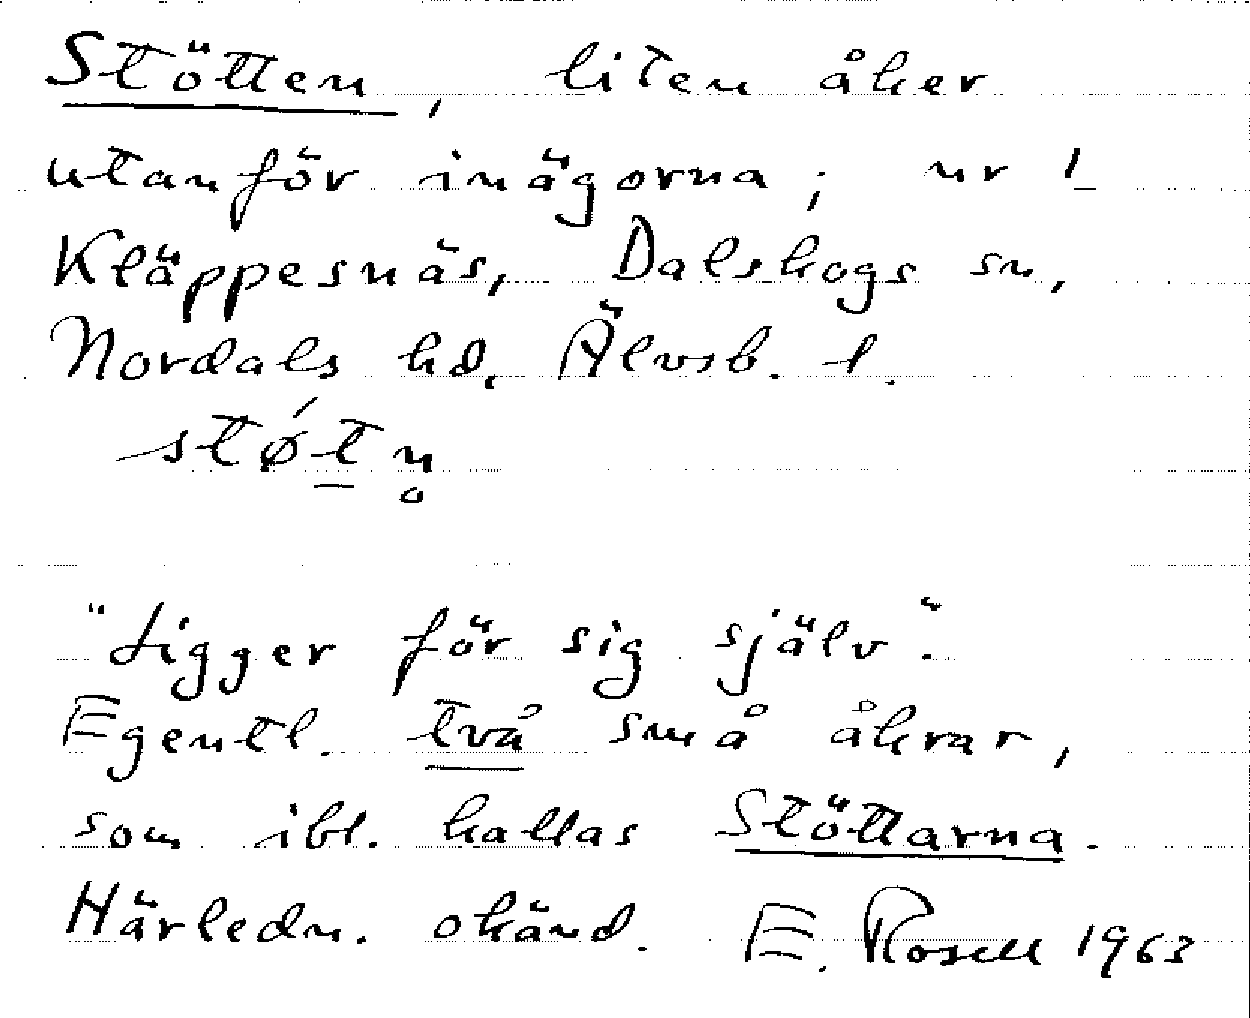 Stötten, liten åker
utanför inägorna; nr 1
Kläppesnäs, Dalskogs sn,
Nordals hd, Älvsb. l.
stǿt̲n̥
"Ligger för sig själv".
Egentl. två små åkrar,
som ibl. kallas Stöttarna.
Härledn. okänd. E. Rosell 1963